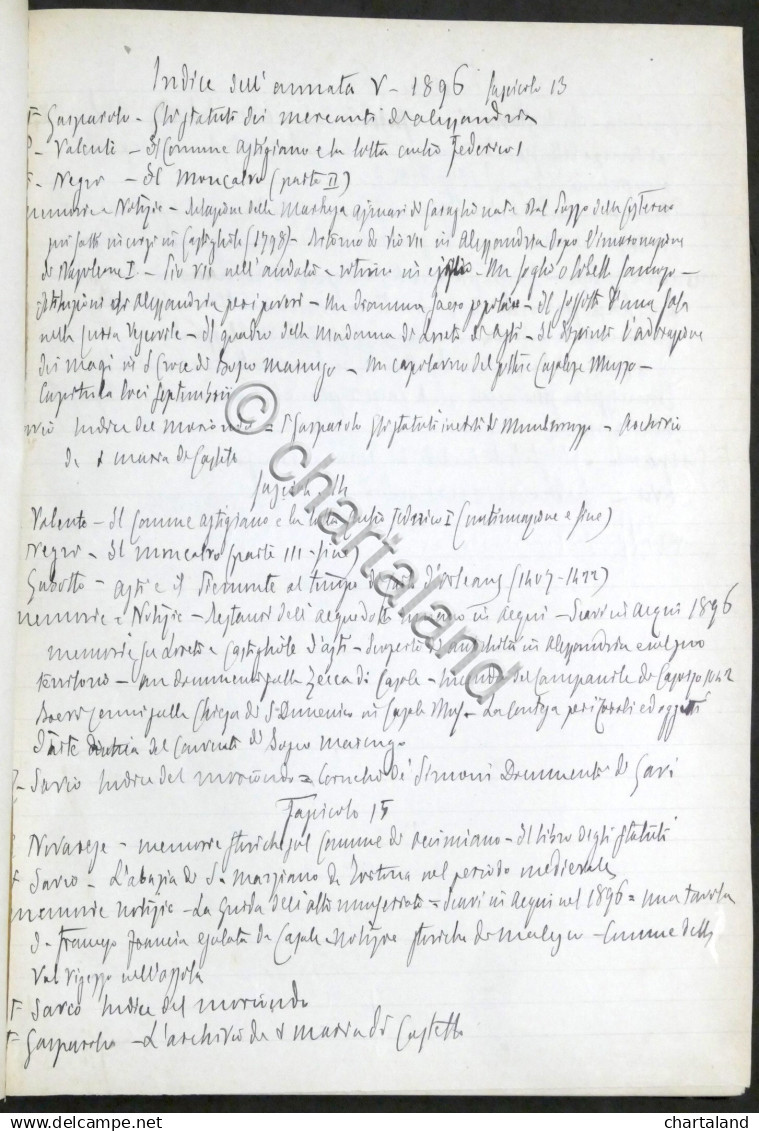 Indice dell'annata V - 1896 fascicolo 13
F Gasparolo - Gli statuti dei mercanti di Alessandria
Valente - Il Comune astigiano e la lotta contro Federico I
F. Negro - Il Moncalvo (parte II)
Memorie e Notizie - Relazione della Marchesa di nata Dal Pozzo della Cisterna
sui fatti in Castigliole (1798) - Ritorno di Pio VII in Alessandria dopo l'incoronazione
di Napoleone I. - Pio VII nell'andata e ritorno in esilio - Un foglio o libello famoso -
di Alessandria per i poveri - Un dramma sacro popolare - Il soffitto d'una sala
nella Curia Vescovile - Il quadro della Madonna di di Asti - Il dipinto l'adorazione
dei Magi in S Croce di Bosco Marengo - Un capolavoro del pittore Casalese Musso -
Capitula loci Septembrii
Indice del Moriondo = F Gasparolo Gli statuti inediti di - Archivio
di S Maria di Castello
fascicolo 14
Valente - Il Comune astigiano e la lotta contro Federico I (continuazione e fine)
Negro - Il Moncalvo (parte III - fine)
Gabotto - Asti e il Piemonte al tempo di d'Orleans (1407-1422)
Memorie e Notizie - Restauri dell'acquedotto romano in Acqui - Scavi in Acqui 1896
Memorie su Loreto e Castigliole d'Asti - Scoperte di antichità in Alessandria e nel suo
territorio - Un documento sulla Zecca di Casale - del campanile di
Brevi cenni sulla Chiesa di S. Domenico in Casale Monf. - La contesa per i Corali ed oggetti
d'arte del Convento di Bosco Marengo
Savio Indice del Moriondo = Cornelio De Simoni Documenti di Gavi
Fascicolo 15
Novarese - Memorie storiche sul Comune di Occimiano - Il libro degli statuti
F Savio - L'abazia di S. Marziano di Tortona nel periodo medievale
Memorie notizie - La Guida dell'alto monferrato = Scavi in Acqui nel 1896 = Una tavola
di Francesco Francia esulata da Casale Notizie storiche di - Comune della
Val Vigezzo nell'ossola
F Savio Indice del Moriondo
F Gasparolo - L'archivio di S Maria di Castello
© chartaland
chartaland